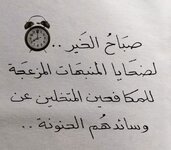 صباحُ الخَير ..
لضحايا المنبهات المزعجة
للمكافحين المتخلين عن
وسائدهُم الحنونة ..